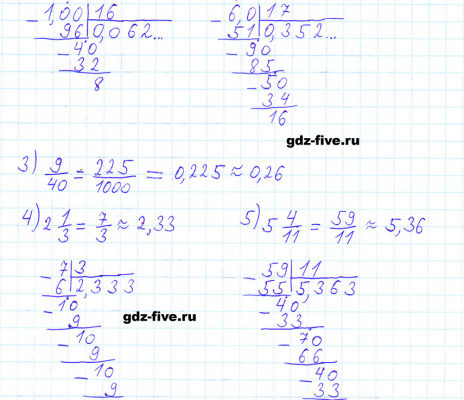 - 1,00 | 16
96 | 0,062...
- 40
32
8
- 6,0 | 17
51 | 0,352...
- 90
85
- 50
34
16
gdz-five.ru
3) 9/40 = 225/1000 = 0,225 ≈ 0,26
4) 2 1/3 = 7/3 ≈ 2,33
5) 5 4/11 = 59/11 ≈ 5,36
- 7 | 3
6 | 2,333
- 10
9
- 10
9
- 10
9
gdz-five.ru
- 59 | 11
55 | 5,363
- 40
33
- 70
66
- 40
33